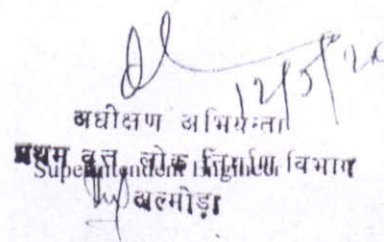 12/5/20
अधीक्षण अभियन्ता
प्रथम वृत्त लोक निर्माण विभाग
Superintendent Engineer
अल्मोड़ा